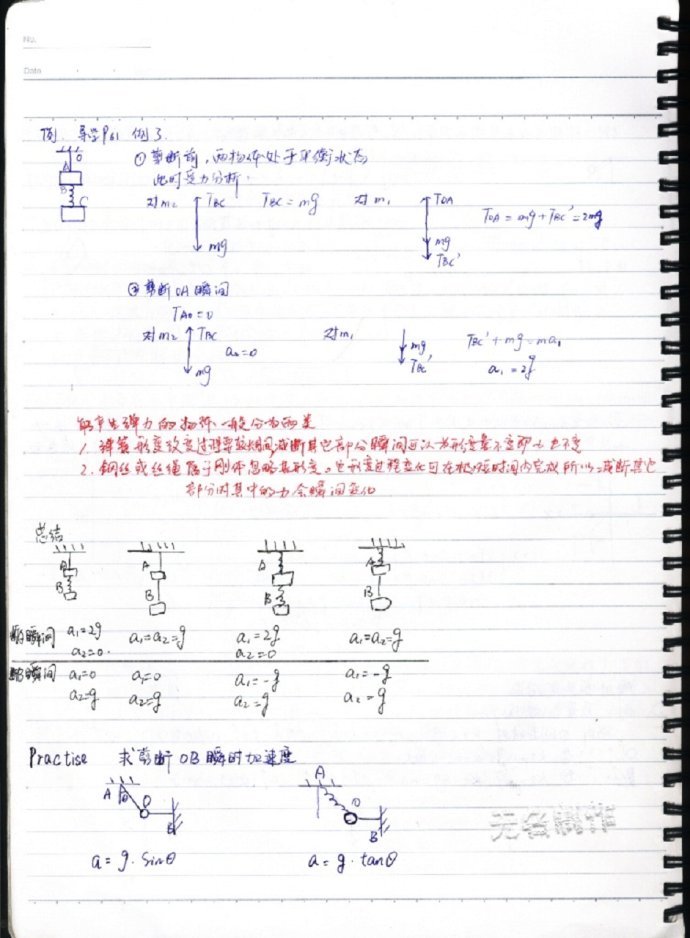 No.
Date
例. 导学P61 例3.
O
A
B
C
① 剪断前, 两物体处于平衡状态
此时受力分析.
对m₂ TBC mg TBC = mg 对m₁ TOA mg TBC' TOA = mg + TBC' = 2mg
② 剪断OA瞬间
TAO = 0
对m₂ TBC mg a₂=0 对m₁ mg TBC' TBC' + mg = ma₁
a₁ = 2g
能产生弹力的物体, 一般分为两类
1. 弹簧 形变改变过程需较长时间, 或断其它部分瞬间可以为形变量不变即力也不变
2. 钢丝或丝绳属于刚体忽略其形变, 它形变过程变化可在极短时间内完成 所以, 或断其它
部分时其中的力会瞬间变化
总结
A A A A
B B B B
瞬间 a₁=2g a₁=a₂=g a₁=2g a₁=a₂=g
a₂=0. a₂=0
瞬间 a₁=0 a₁=0 a₁=-g a₁=-g
a₂=g a₂=g a₂=g a₂=g
Practise 求剪断OB瞬时加速度
A θ O B A O B
a = g·sinθ a = g·tanθ
无名制作